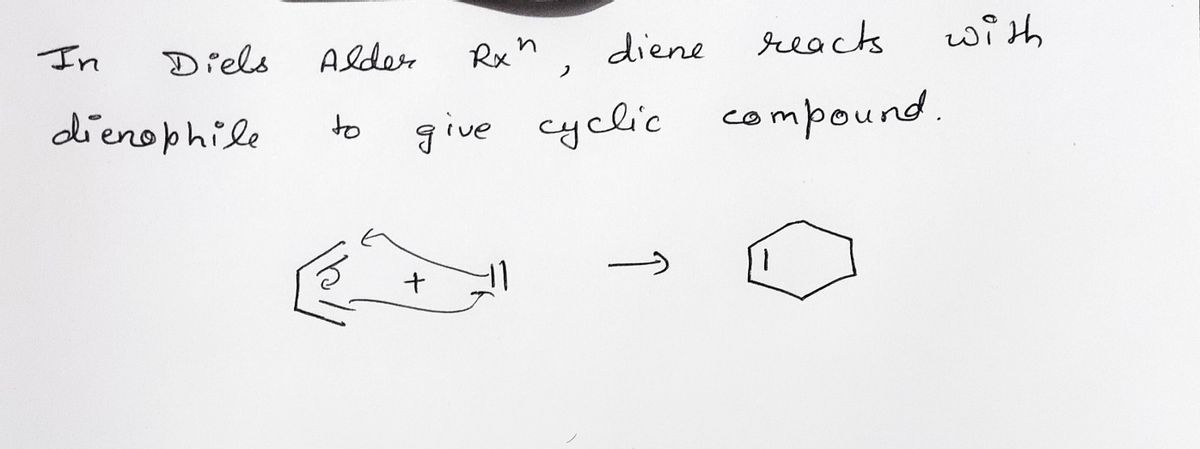 In Diels Alder Rxⁿ, diene reacts with
dienophile to give cyclic compound.
+ →